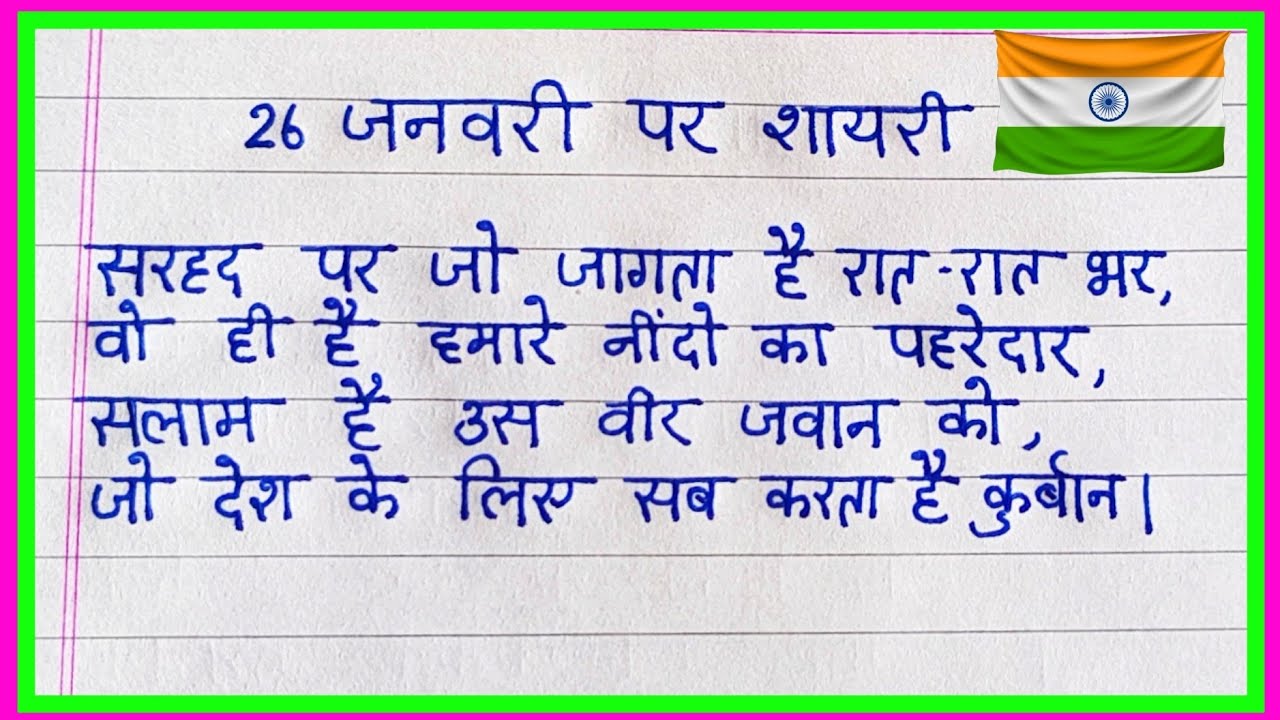 26 जनवरी पर शायरी
सरहद पर जो जागता है रात-रात भर,
वो ही है हमारे नींदो का पहरेदार,
सलाम है उस वीर जवान को,
जो देश के लिए सब करता है कुर्बान।